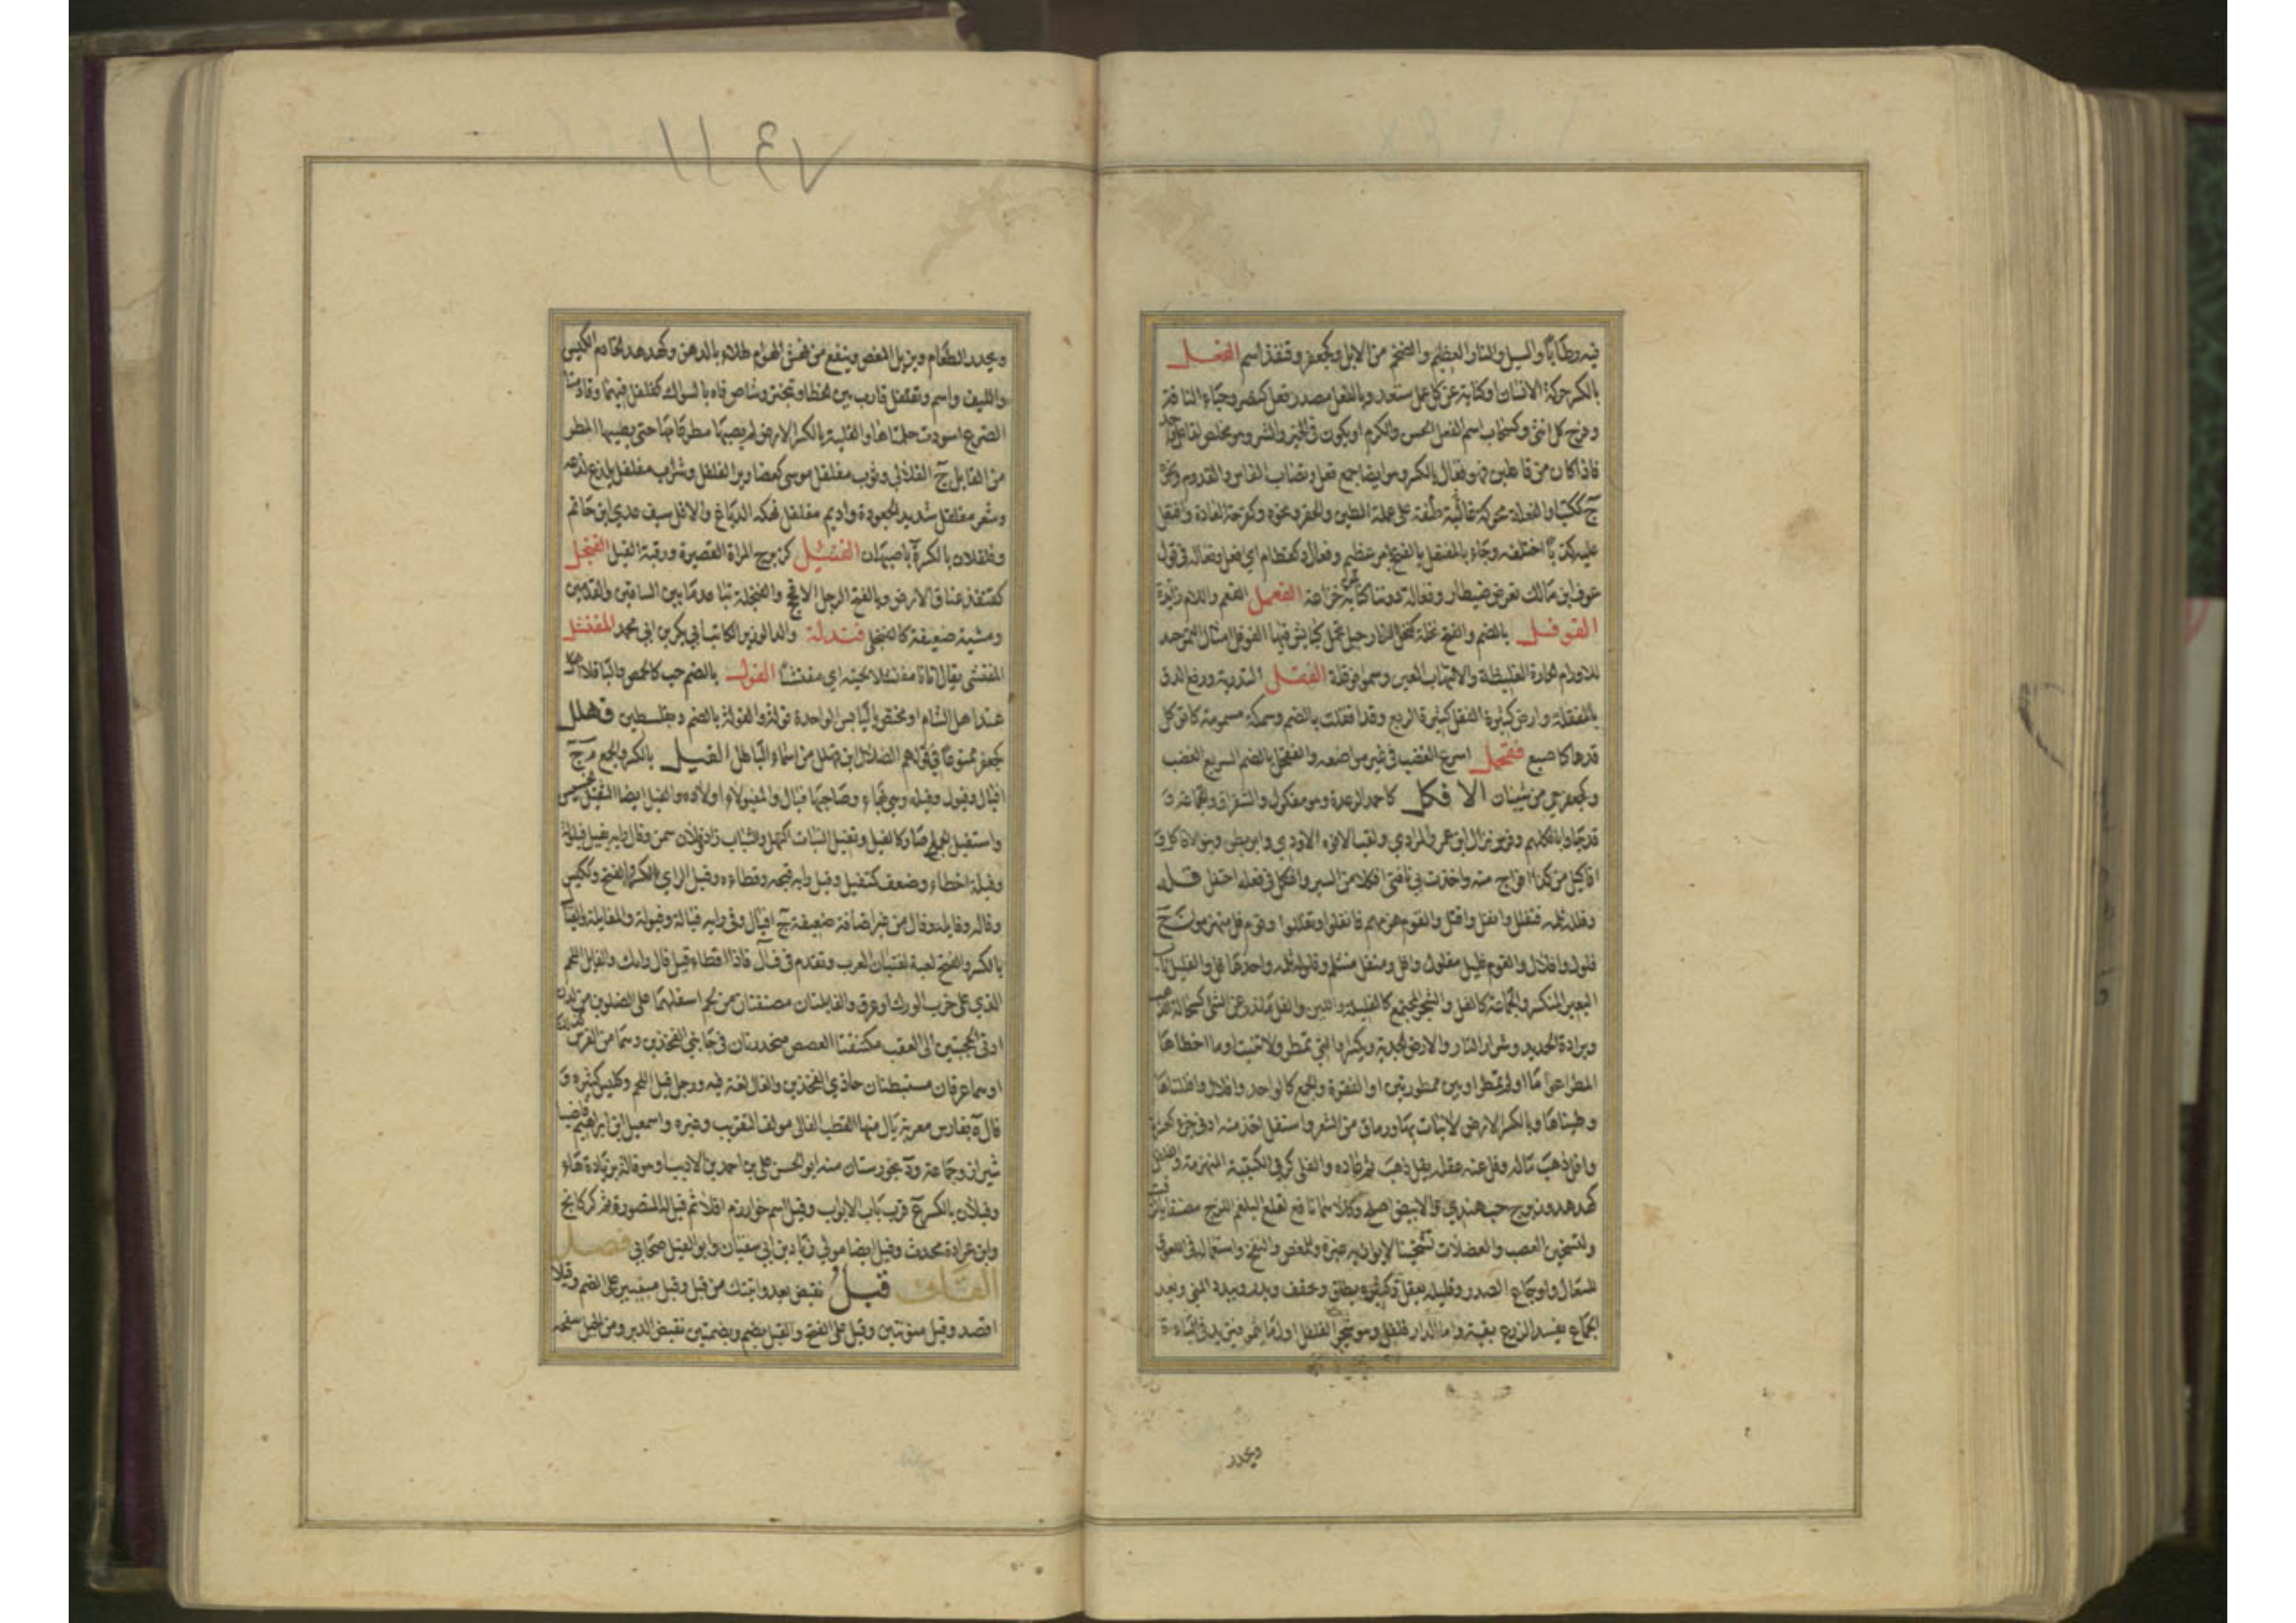 فيه وطابا والسيل والنار العظيم والضخم من الابل وكجعفر وقنفذ اسم الفعل
بالكسر حركة الانسان او كناية عن كل عمل متعد وبالفتح مصدر فعل كمنع وحياء الناقة
وفرج كل انثى وكسحاب اسم الفعل الحسن والكرم او يكون في الخير والشر وهو مخلص لفاعل واحد
فاذا كان من فاعلين فهو فعال بالكسر وهو ايضا جمع فعل ونصاب الفاس والقدوم ونحوه
ج ككتب والفعلة محركة صفة غالبة على عملة الطين والحفر ونحوه وكفرحة العادة وافتعل
عليه كذبا اختلقه وجاء بالمفتعل بالفتح بامر عظيم وفعال كقطام اي افعل وفعالة في قول
عوف ابن مالك تعرض ضيطار وفعالة دوننا كناية عن خزاعة الفعمل الفعم واللام زائدة
الفوفل بالضم والفتح نخلة كنخل النارجيل تحمل كبائس فيها الفوفل امثال التمر جيد
للاورام الحارة الغليظة والالتهاب العين وسموا فوفلة الفقل التذرية ورفع الدق
بالمفقلة وارض كثيرة الفقل كثيرة الريع وقد افقلت بالضم وسمكة مسمومة كانق كل
قدها كاصبع فقحل اسرع الغضب في غير موضعه والفقحل بالضم السريع الغضب
وكجعفر حي من شيبان الافكل كاحمد الرعدة وهو مفكول والشقراق والجماعة و
قد جاوا بافكلهم وفرس نزال ابن عمرو المرادي ولقب الافوه الاودي وابو بطن وبنو الافاكل و
افاكيل من كذا افواج منه واخذت بي ناقتي افكلا من السير وافتكل في فعله احتفل فله
وفلله ثلمه فتفلل وانفل وافتل والقوم هزمهم فانفلوا وتفللوا وقوم فل منهزمون ج
فلول وافلال والقوم فليل مفلول وافل ومنفل منثلم وفلوله ثلمه واحدها فل والفليل ناب
البعير المنكسر والجماعة كالفل والشعر المجتمع كالفليلة والليف والفل ما ندر عن الشئ كسحالة الذهب
وبرادة الحديد وشرار النار والارض الجدبة ويكسر او التي تمطر ولا تنبت او ما اخطاها
المطر اعواما او لم تمطر او بين ممطورتين او القفرة والجمع كالواحد وافلال وافللناها
وطئناها وبالكسر الارض لا نبات بها وما رق من الشعر واستفل اخذ منه ادنى جزء كعشره
وافل ذهب ماله وفل عنه عقله يفل ذهب ثم عاده والفلى كربى الكتيبة المنهزمة والفلفل
كهدهد وزبرج حب هندي والابيض اصلح وكلاهما نافع لقلع البلغم اللزج مضغا بالزفت
ولتسخين العصب والعضلات تسخينا لا يوازيه غيره وللمغص والنفخ واستعماله في اللعوق
للسعال واوجاع الصدر وقليله يعقل وكثيره يطلق ويجفف ويدر ويبدد المني وبعد
الجماع يفسد الزرع بقية واما الدار فلفل وهو شجر الفلفل اول ما يثمر فيزيد في الباءة
ويحدر
ويحدر الطعام ويزيل المغص وينفع من نهش الهوام طلاء بالدهن وكهدهد الخادم الكيس
والليف واسم وتفلفل قارب بين الخطا وتبختر وشاص فاه بالسواك كفلفل فيهما وقادمتا
الضرع اسودت حلمتاها والفلية بالكسر الارض لم يصبها مطر عامها حتى يصيبها المطر
من القابل ج الفلالي وثوب مفلفل موشى كصعارير الفلفل وشراب مفلفل يلذع لذعه
وشعر مفلفل شديد الجعودة واديم مفلفل نهكه الدباغ والافل سيف عدي ابن حاتم
وفلفلان بالكسر ة باصبهان الفنئل كزبرج المراة القصيرة ورقبة الفيل الفنجل
كقنفذ عناق الارض وبالفتح الرجل الافحج والفنجلة تباعد ما بين الساقين والقدمين
ومشية ضعيفة كالفنجلى فندلة والد الوزير الكاتب ابي بكر بن ابي محمد المفنشل
المفنشى يقال اتانا مفنشلا لحيته اي مفنشا الفول بالضم حب كالحمص والباقلا
عند اهل الشام او مختص باليابس الواحدة فولة والفولة بالضم د بفلسطين فهلل
كجعفر ممنوعا في قولهم الضلال ابن فهلل من اسماء الباطل الفيل بالكسر والجمع م ج
افيال وفيول وفيلة وهي بهاء وصاحبها فيال والمفيولاء اولاده والفيل ايضا الثقيل الخسيس
واستفيل الجمل صار كالفيل وتفيل النبات اكتهل والشباب زاد وفلان سمن وفال رايه يفيل فيلولة
وفيلة اخطا وضعف كتفيل وفيل رايه قبحه وخطاه وفيل الراي بالكسر والفتح وككيس
وفاله وفايله وفال من غير اضافة ضعيفه ج افيال وفي رايه فيالة وفيولة والمفايلة والفيال
بالكسر والفتح لعبة لفتيان العرب وتقدم في فأل فاذا اخطا قيل فال رايك والفايل اللحم
الذي على خرب الورك او عرق والفايلتان مضغتان من لحم اسفلهما على الصلوين من لدن
ادنى الحجبتين الى العقب مكتنفتا العصعص منحدرتان في جانبي الفخذين وهما من الفرس كذلك
او هما عرقان مستبطنان حاذي الفخذين والفال لغة فيه ورجل فيل اللحم وككيس كثيره و
فال ة بفارس معربة بال منها القطب الفالي مولف التقريب وغيره واسمعيل ابن ابراهيم قاضي
شيراز وجماعة ود بخوزستان منه ابو الحسن علي بن احمد بن الاديب او هو فالة بزيادة هاء
وفيلان بالكسر ع قرب باب الابواب وفيل اسم خوارزم اولا ثم قيل لها المنصورة ثم كركانج
وابن عرادة محدث وفيل ايضا مولى زياد بن ابي سفيان وابو الفيل صحابي فصل
القاف قبل نقيض بعد واتيتك من قبل وقبل مبنيتين على الضم وقبلا
اقصد وقبل منونتين وقبل على الفتح والقبل بضم وبضمتين نقيض الدبر ومن الجبل سفحه